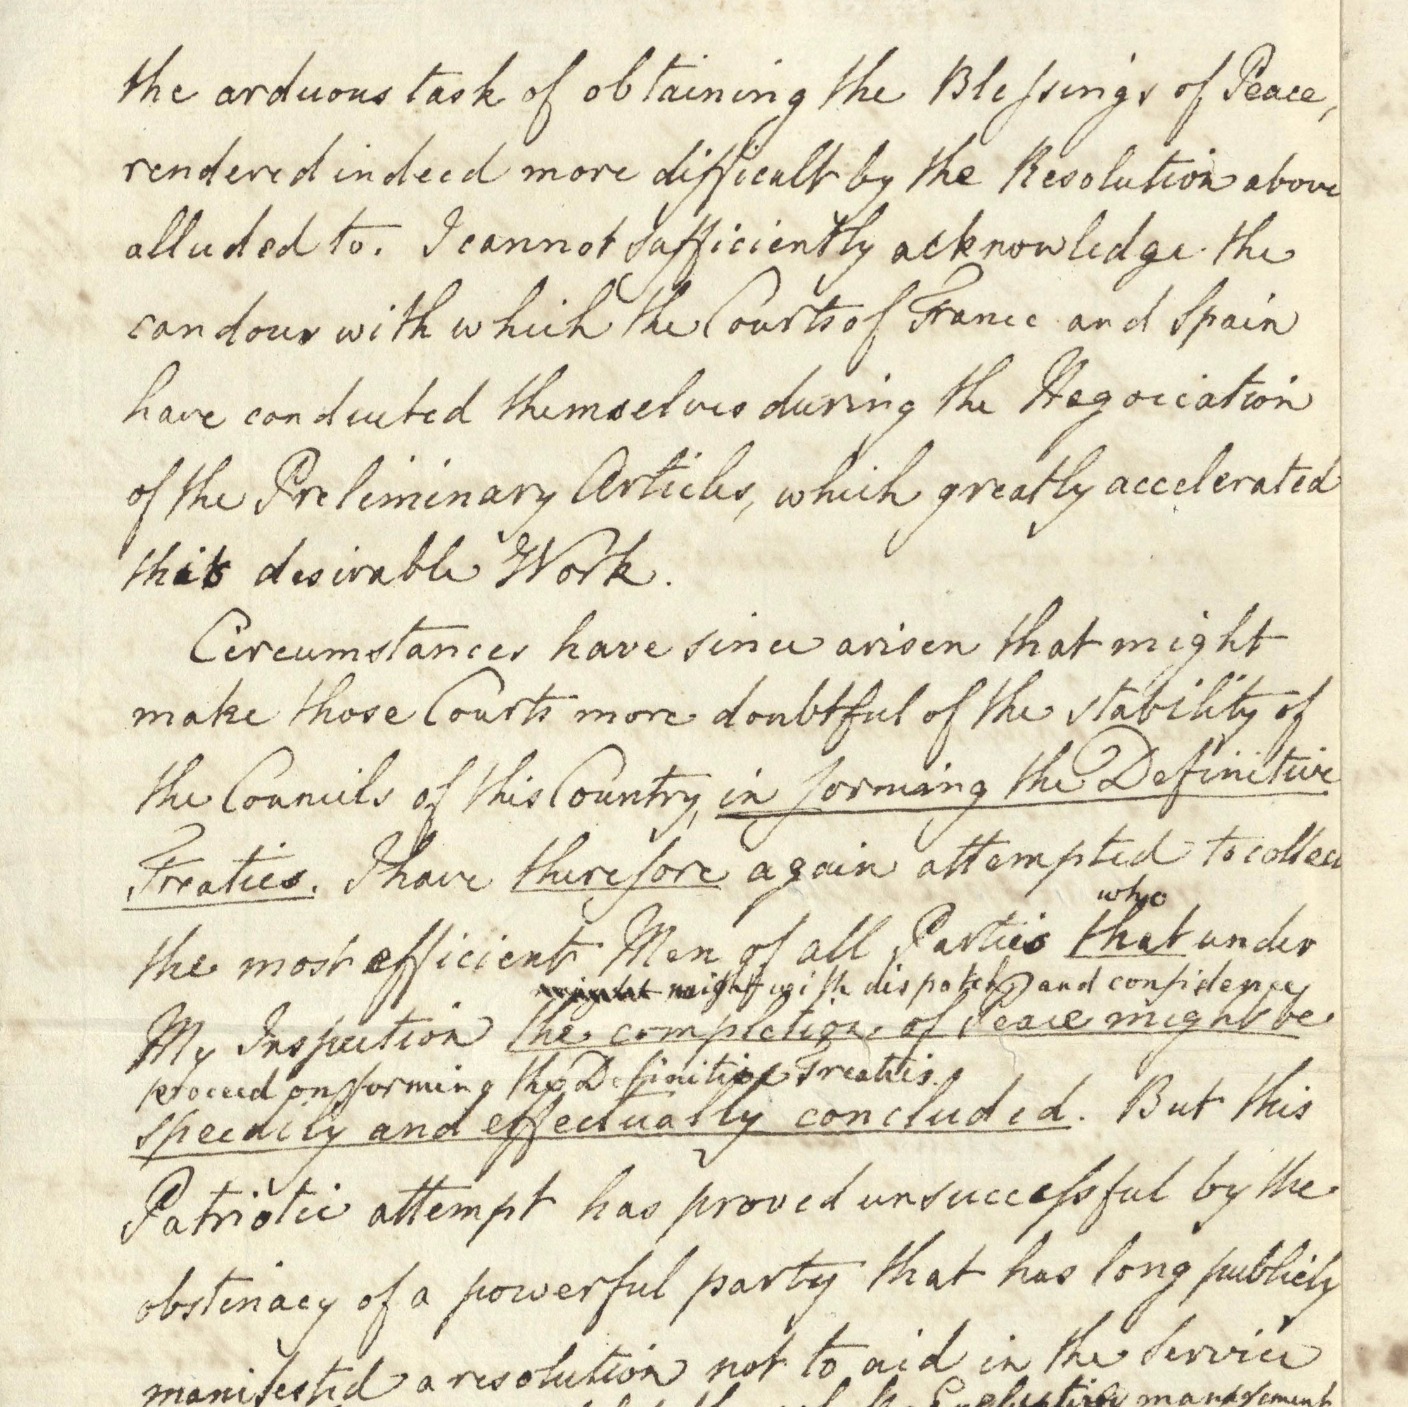 the arduous task of obtaining the Blessings of Peace,
rendered indeed more difficult by the Resolution above
alluded to. I cannot sufficiently acknowledge the
candour with which the Courts of France and Spain
have conducted themselves during the Negociation
of the Preliminary Articles, which greatly accelerated
that desirable Work.
Circumstances have since arisen that might
make those Courts more doubtful of the stability of
the Councils of this Country, in forming the Definitive
Treaties. I have therefore again attempted to collect
who
the most efficient Men of all Parties that under
might might with dispatch and confidence
My Inspection the completion of Peace might be
proceed on forming the Definitive Treaties.
speedily and effectually concluded. But this
Patriotic attempt has proved unsuccessful by the
obstinacy of a powerful party that has long publicly
manifested a resolution not to aid in the Service
management